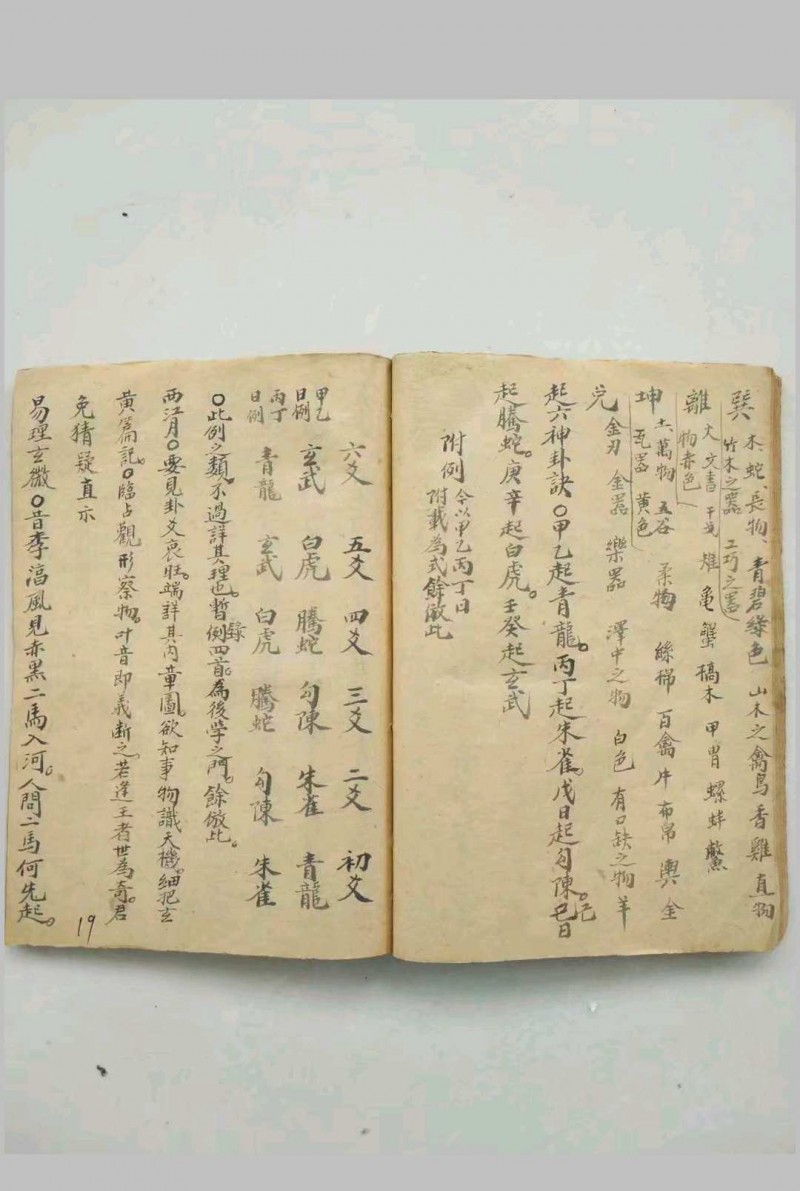 巽 木、蛇、長物、青碧綠色 山木之禽鳥香雞直物
竹木之器 工巧之器
離 火 文書 干戈 雉 龜 蟹 稿木 甲冑 螺 蚌 鱉
物赤色
坤 土 萬物 五谷 柔物 絲棉 百禽 牛 布帛 輿 金
瓦器 黃色
兌 金刃 金器 樂器 澤中之物 白色 有口缺之物 羊
起六神卦訣〇甲乙起青龍。丙丁起朱雀。戊日起勾陳。己日
起騰蛇。庚辛起白虎。壬癸起玄武
附例 今以甲乙丙丁日
附載為式餘倣此
六爻 五爻 四爻 三爻 二爻 初爻
甲乙日例 玄武 白虎 騰蛇 勾陳 朱雀 青龍
丙丁日例 青龍 玄武 白虎 騰蛇 勾陳 朱雀
〇此例之類。不過詳其理也。暫錄例四首。為後學之門。餘倣此。
西江月〇要見卦爻衰旺。端詳其內章圖。欲知事物識天機。細把玄
黃篇記。〇臨占觀形察物。叶音即義斷之。若逢王者世為奇。君
免猜疑直示
易理玄微〇昔李 風見赤黑二馬入河。人問二馬何先起。
19